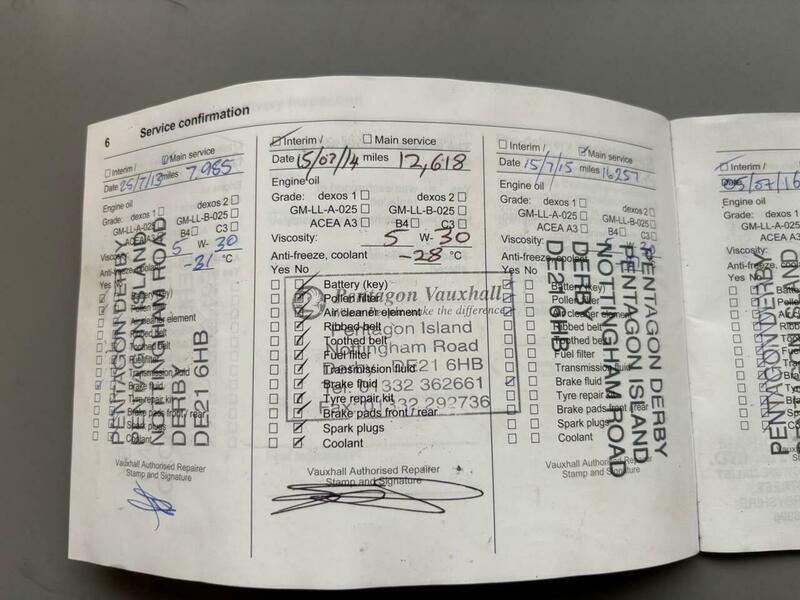 6
Service confirmation
Interim /
Main service
Date 25/7/13 miles 7,985
Engine oil
Grade: dexos 1
dexos 2
GM-LL-A-025
GM-LL-B-025
ACEA A3
B4
C3
Viscosity: 5 W- 30
Anti-freeze, coolant -31 °C
Yes No
Battery (key)
Pollen filter
Air cleaner element
Ribbed belt
Toothed belt
Fuel filter
Transmission fluid
Brake fluid
Tyre repair kit
Brake pads front / rear
Spark plugs
Coolant
PENTAGON DERBY
PENTAGON ISLAND
NOTTINGHAM ROAD
DERBY
DE21 6HB
Vauxhall Authorised Repairer
Stamp and Signature
Interim /
Main service
Date 15/07/14 miles 12,618
Engine oil
Grade: dexos 1
dexos 2
GM-LL-A-025
GM-LL-B-025
ACEA A3
B4
C3
Viscosity: 5 W- 30
Anti-freeze, coolant -28 °C
Yes No
Battery (key)
Pollen filter
Air cleaner element
Ribbed belt
Toothed belt
Fuel filter
Transmission fluid
Brake fluid
Tyre repair kit
Brake pads front / rear
Spark plugs
Coolant
Pentagon Vauxhall
make the difference
Pentagon Island
Nottingham Road
DE21 6HB
Tel: 01332 362661
Fax: 01332 292736
Vauxhall Authorised Repairer
Stamp and Signature
Interim /
Main service
Date 15/7/15 miles 16257
Engine oil
Grade: dexos 1
dexos 2
GM-LL-A-025
GM-LL-B-025
ACEA A3
B4
C3
Viscosity: 5 W- 30
Anti-freeze, coolant °C
Yes No
Battery (key)
Pollen filter
Air cleaner element
Ribbed belt
Toothed belt
Fuel filter
Transmission fluid
Brake fluid
Tyre repair kit
Brake pads front / rear
Spark plugs
Coolant
PENTAGON DERBY
PENTAGON ISLAND
NOTTINGHAM ROAD
DERBY
DE21 6HB
Vauxhall Authorised Repairer
Stamp and Signature
Interim /
Date 05/07/16
Engine oil
Grade:
GM-LL-A
ACEA
Viscosity:
Anti-freeze,
Yes No
PENTAGON DERBY
PENTAGON ISLAND